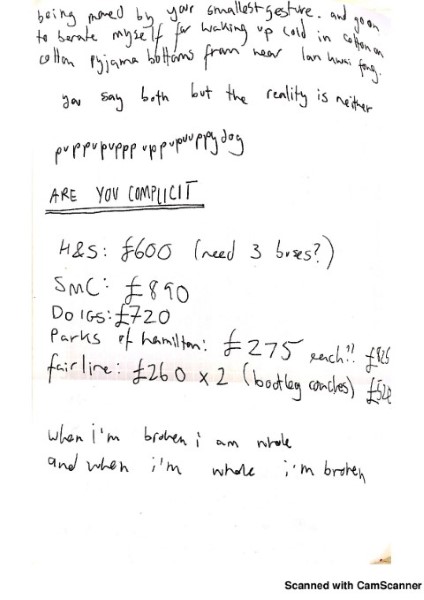 being moved by your smallest gesture. and go on
to berate myself for waking up cold in cotton on
cotton pyjama bottoms from near lan kwai fong.
you say both but the reality is neither
puppupuppp uppupuuppydog
ARE YOU COMPLICIT
H&S: £600 (need 3 buses?)
SMC: £890
DOIGS: £720
Parks of hamilton: £275 each!! £825
fairline: £260 x 2 (bootleg coaches) £520
when i'm broken i am whole
and when i'm whole i'm broken
Scanned with CamScanner